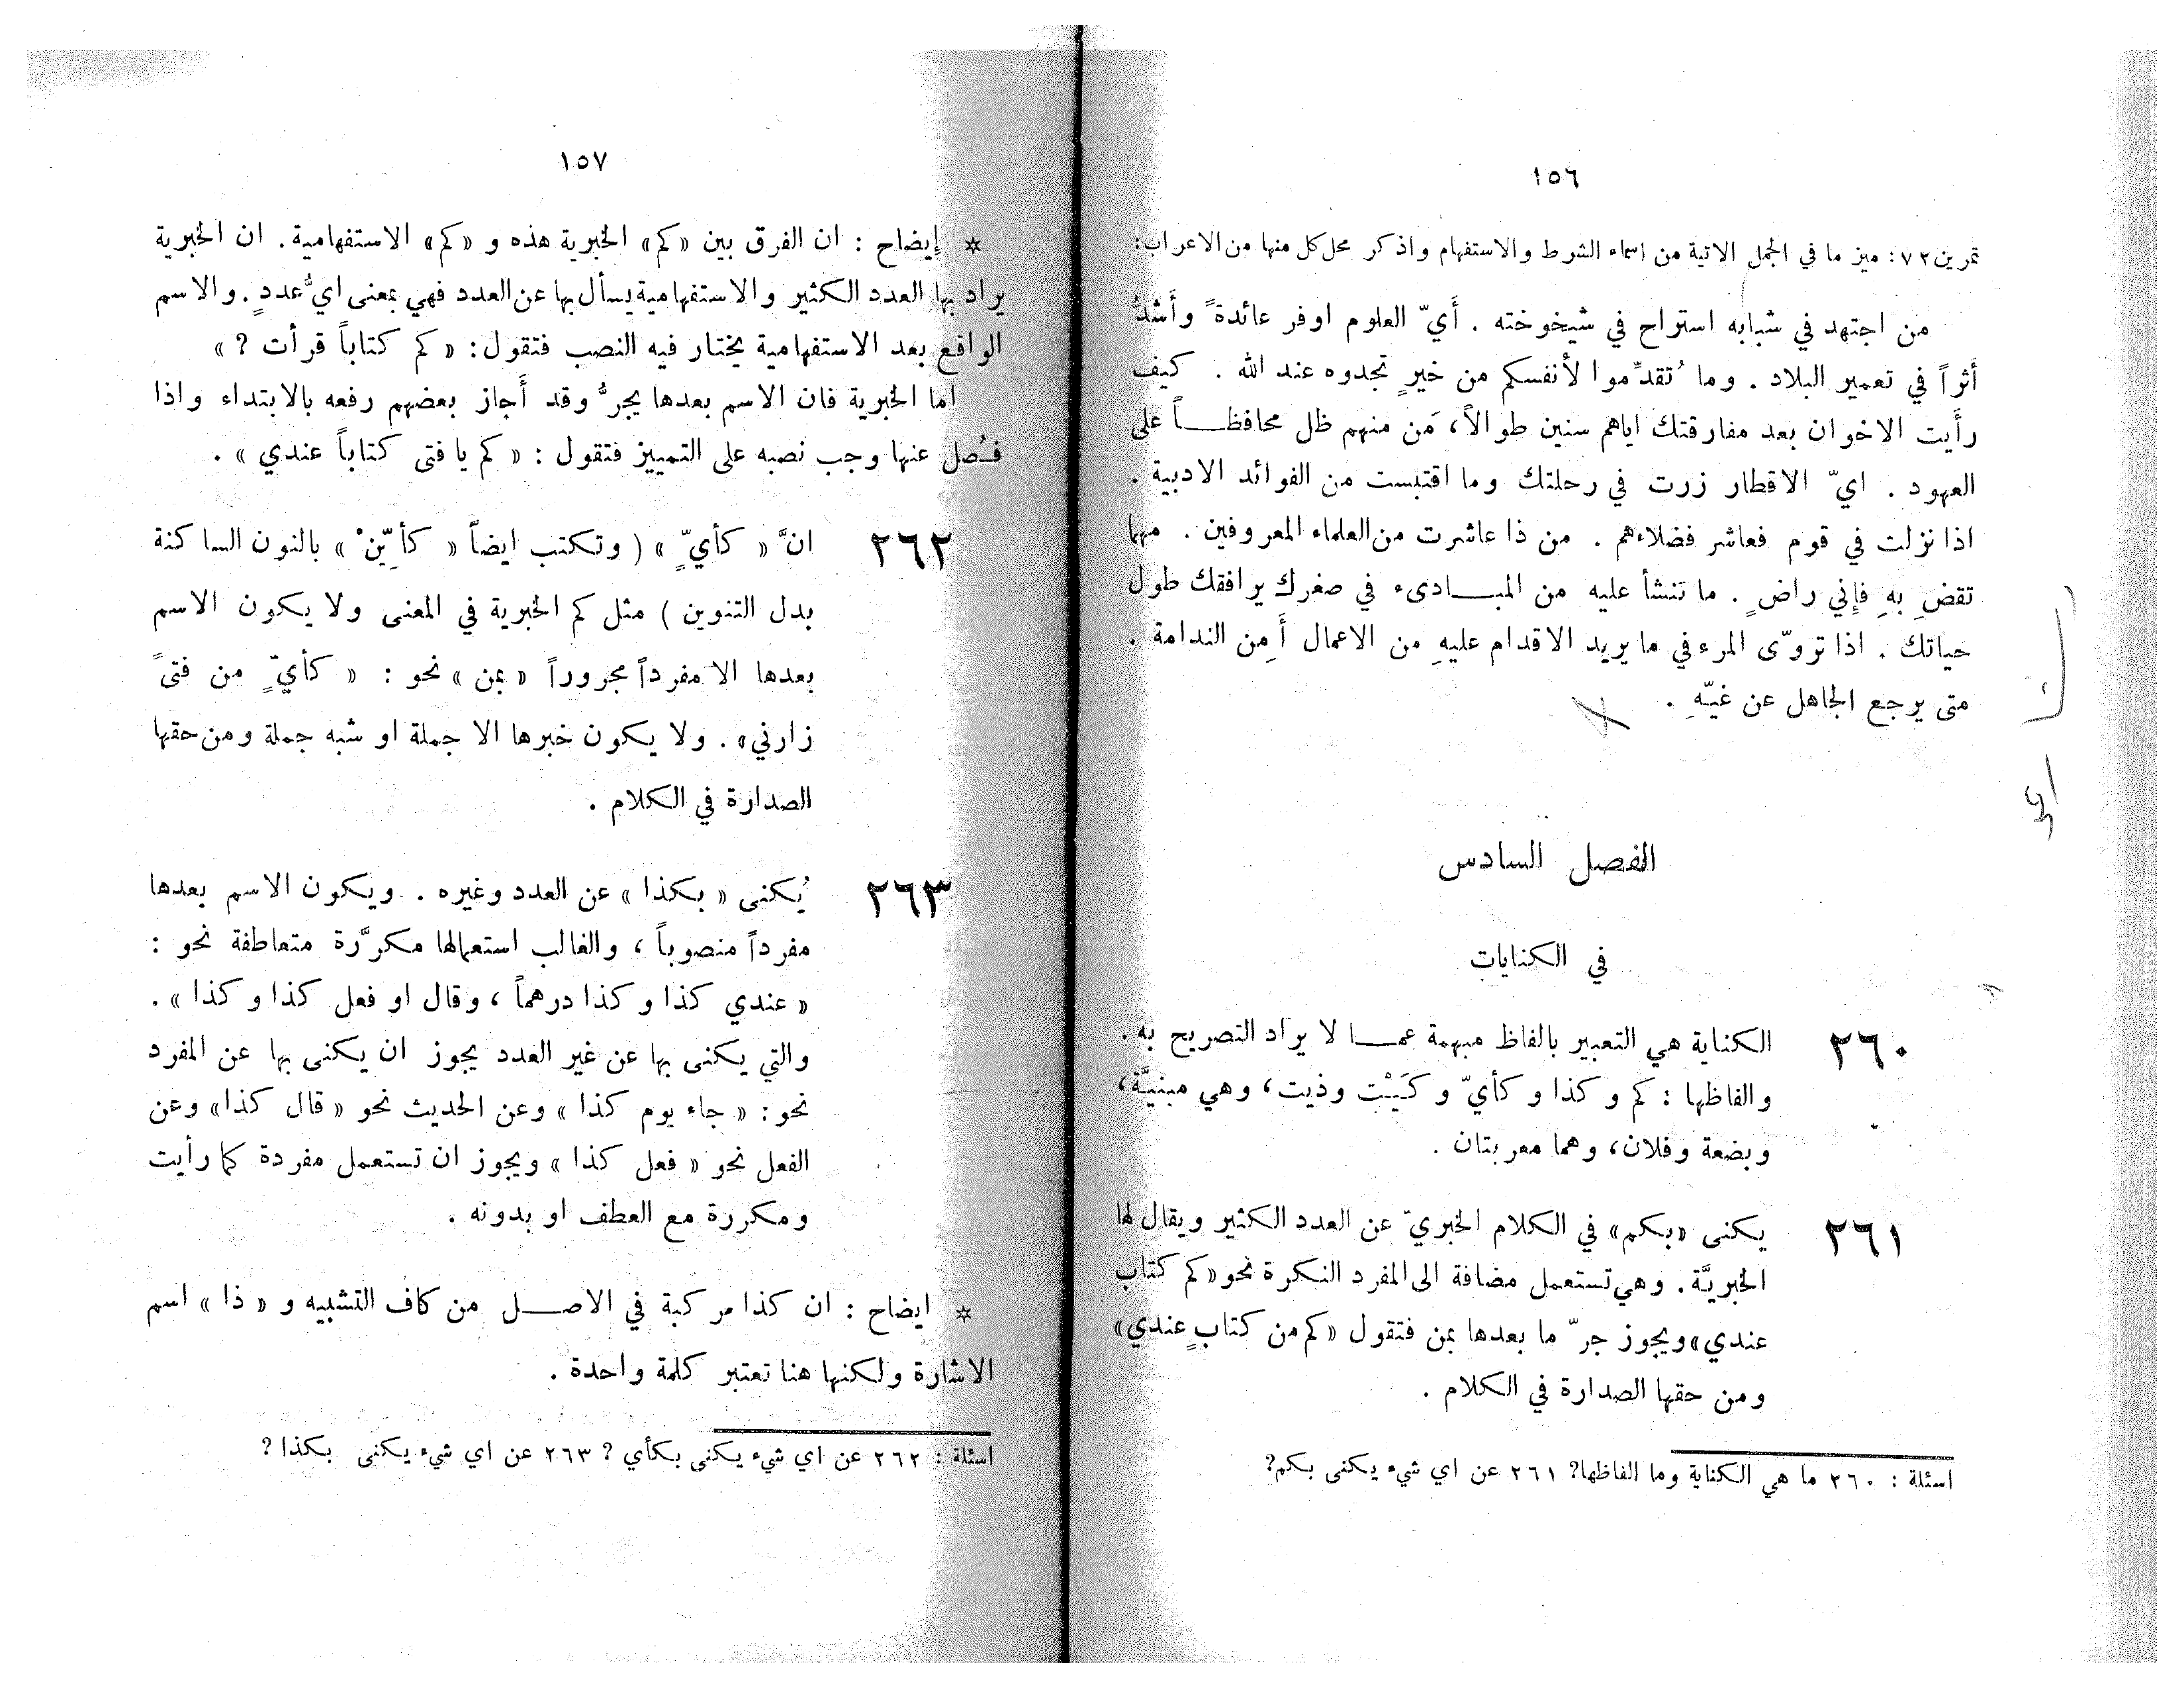 ١٥٦
تمرين ٧٢: ميز ما في الجمل الاتية من اسماء الشرط والاستفهام واذكر محل كل منها من الاعراب:
من اجتهد في شبابه استراح في شيخوخته . أَيّ العلوم اوفر عائدةً وأَشدُّ
أثراً في تعمير البلاد . وما تُقدِّموا لأنفسكم من خيرٍ تجدوه عند الله . كيف
رأَيت الاخوان بعد مفارقتك اياهم سنين طوالاً، مَن منهم ظل محافظـــاً على
العهود . ايّ الاقطار زرت في رحلتك وما اقتبست من الفوائد الادبية .
اذا نزلت في قوم فعاشر فضلاءهم . من ذا عاشرت من العلماء المعروفين . مهما
تقضِ بهِ فإِني راضٍ . ما تنشأ عليه من المبـــادىء في صغرك يرافقك طول
حياتك . اذا تروّى المرء في ما يريد الاقدام عليهِ من الاعمال أَمِن الندامة .
متى يرجع الجاهل عن غيّهِ .
الفصل السادس
في الكنايات
٢٦٠ الكناية هي التعبير بالفاظ مبهمة عمـــا لا يراد التصريح به .
والفاظها : كم وكذا وكأيّ وكَيْت وذيت، وهي مبنيَّة،
وبضعة وفلان، وهما معربتان .
٢٦١ يكنى «بكم» في الكلام الخبريّ عن العدد الكثير ويقال لها
الخبريَّة . وهي تستعمل مضافة الى المفرد النكرة نحو «كم كتاب
عندي» ويجوز جرّ ما بعدها بمن فتقول «كم من كتابٍ عندي»
ومن حقها الصدارة في الكلام .
اسئلة : ٢٦٠ ما هي الكناية وما الفاظها؟ ٢٦١ عن اي شيء يكنى بكم؟
١٥٧
✡ إيضاح : ان الفرق بين «كم» الخبرية هذه و «كم» الاستفهامية . ان الخبرية
يراد بها العدد الكثير والاستفهامية يسأل بها عن العدد فهي بمعنى ايُّ عددٍ . والاسم
الواقع بعد الاستفهامية يختار فيه النصب فتقول : « كم كتاباً قرأت ؟ »
اما الخبرية فان الاسم بعدها يجرُّ وقد أَجاز بعضهم رفعه بالابتداء واذا
فُصل عنها وجب نصبه على التمييز فتقول : « كم يا فتى كتاباً عندي » .
٢٦٢ انَّ « كأيٍّ » ( وتكتب ايضاً « كأيِّنْ » بالنون الساكنة
بدل التنوين ) مثل كم الخبرية في المعنى ولا يكون الاسم
بعدها الا مفرداً مجروراً « بمن » نحو : « كأيٍّ من فتىً
زارني» . ولا يكون خبرها الا جملة او شبه جملة ومن حقها
الصدارة في الكلام .
٢٦٣ يُكنى « بكذا » عن العدد وغيره . ويكون الاسم بعدها
مفرداً منصوباً ، والغالب استعمالها مكرَّرة متعاطفة نحو :
« عندي كذا وكذا درهماً ، وقال او فعل كذا وكذا » .
والتي يكنى بها عن غير العدد يجوز ان يكنى بها عن المفرد
نحو : « جاء يوم كذا » وعن الحديث نحو « قال كذا» وعن
الفعل نحو « فعل كذا » ويجوز ان تستعمل مفردة كما رأيت
ومكررة مع العطف او بدونه .
✡ ايضاح : ان كذا مركبة في الاصـــل من كاف التشبيه و « ذا » اسم
الاشارة ولكنها هنا تعتبر كلمة واحدة .
اسئلة : ٢٦٢ عن اي شيء يكنى بكأي ؟ ٢٦٣ عن اي شيء يكنى بكذا ؟